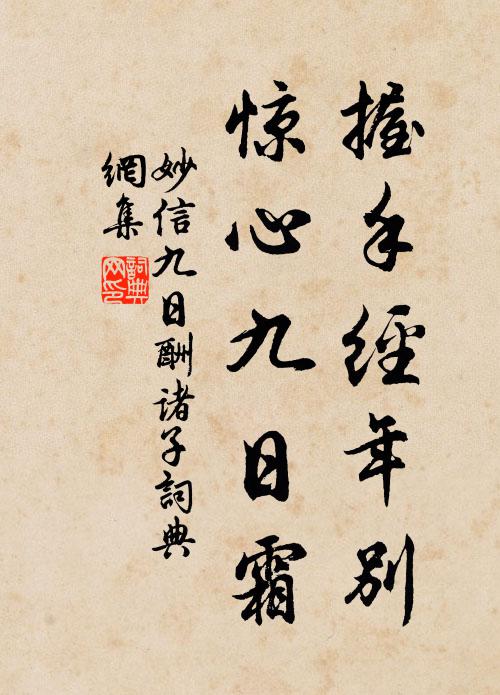 握手經年别
惊心九日霜
妙信九日酬诸子詞典
網集
詞典
网印